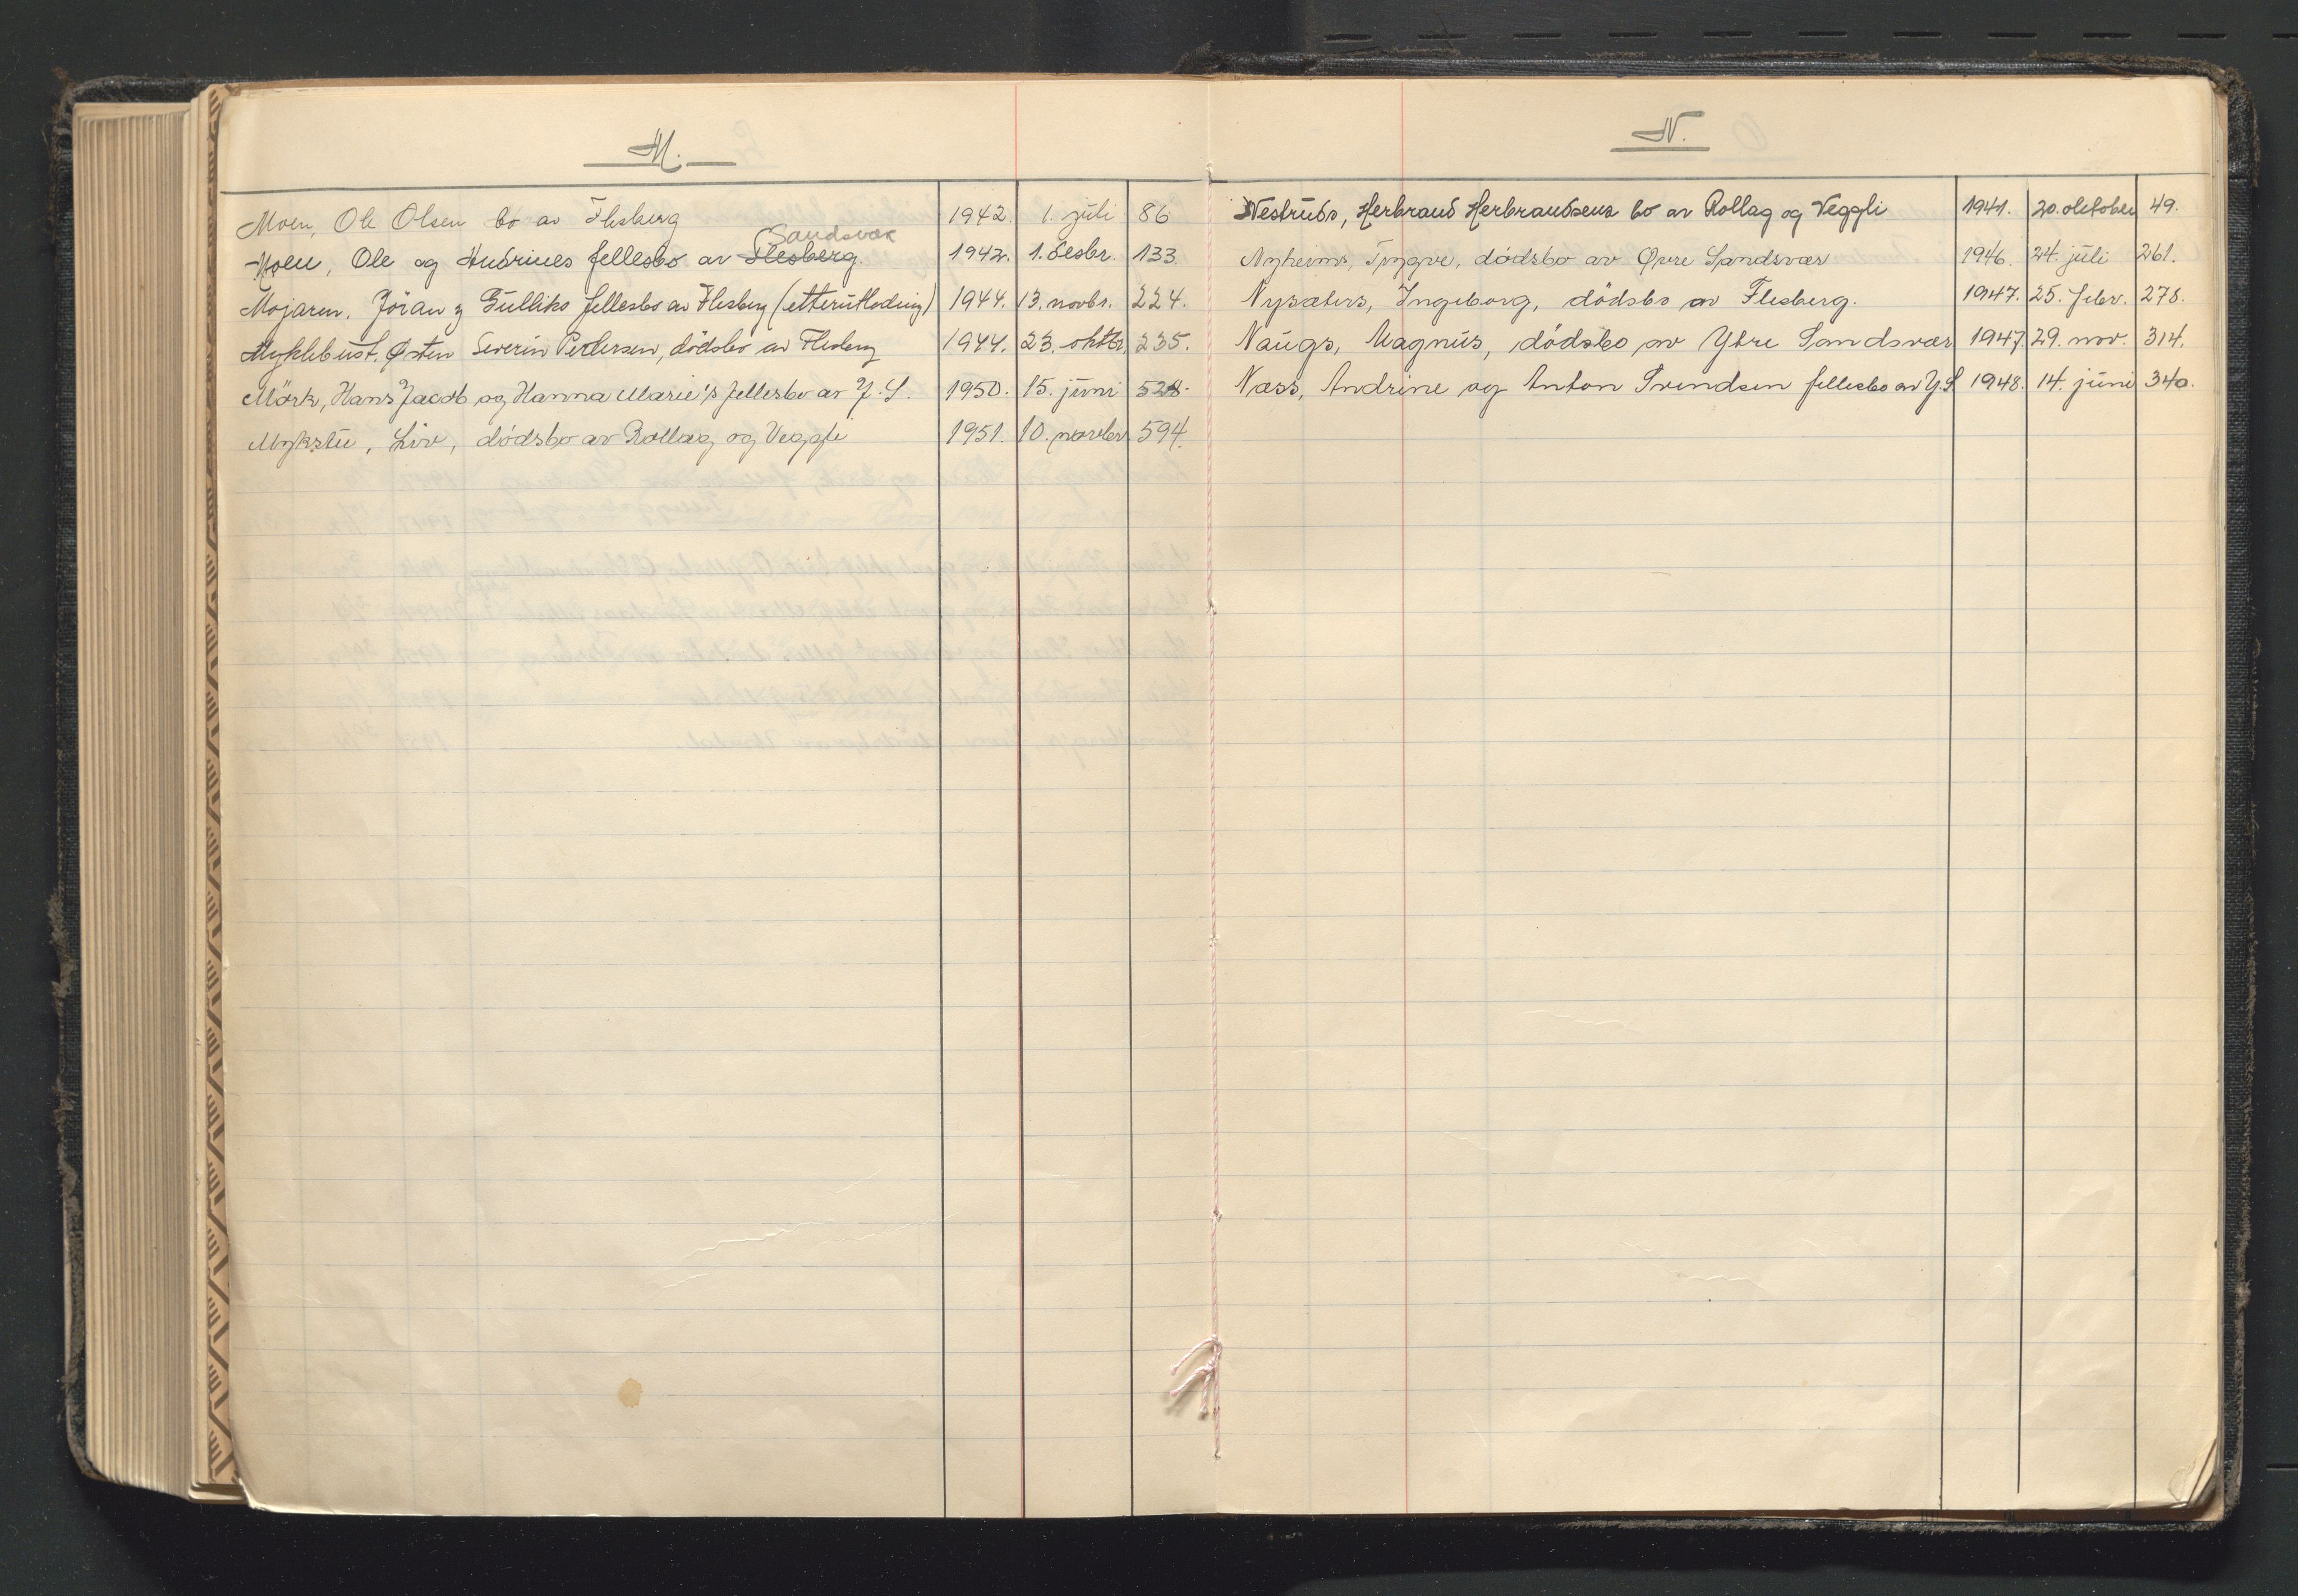 M.
Moen, Ole Olsen bo av Flesberg 1942. 1. juli 86
Sandsvær
Moen, Ole og Andrines fellesbo av Flesberg. 1942. 1. desbr. 133.
Mojaren, Jöran og Gulliks fellesbo av Flesberg (etterutlodning) 1944. 13. novbr. 224.
Myklebust, Østen Severin Pedersen, dödsbo av Flesberg 1944. 23. oktbr. 235.
Mörk, Hans Jacob og Hanna Marie's fellesbo av Y. S. 1950. 15. juni 528.
Mykstu, Liv, dödsbo av Rollag og Veggli 1951. 10. novbr 594.
N.
Nestruds, Herbrand Herbrandsens bo av Rollag og Veggli 1941. 20. oktober 49.
Nyheims, Trygve, dödsbo av Øvre Sandsvær 1946. 24. juli 261.
Nysæters, Ingeborg, dödsbo av Flesberg. 1947. 25. febr. 278.
Naugs, Magnus, dödsbo av Ytre Sandsvær 1947. 29. nov. 314.
Næss, Andrine og Anton Svendsen fellesbo av Y. S 1948. 14. juni 340.